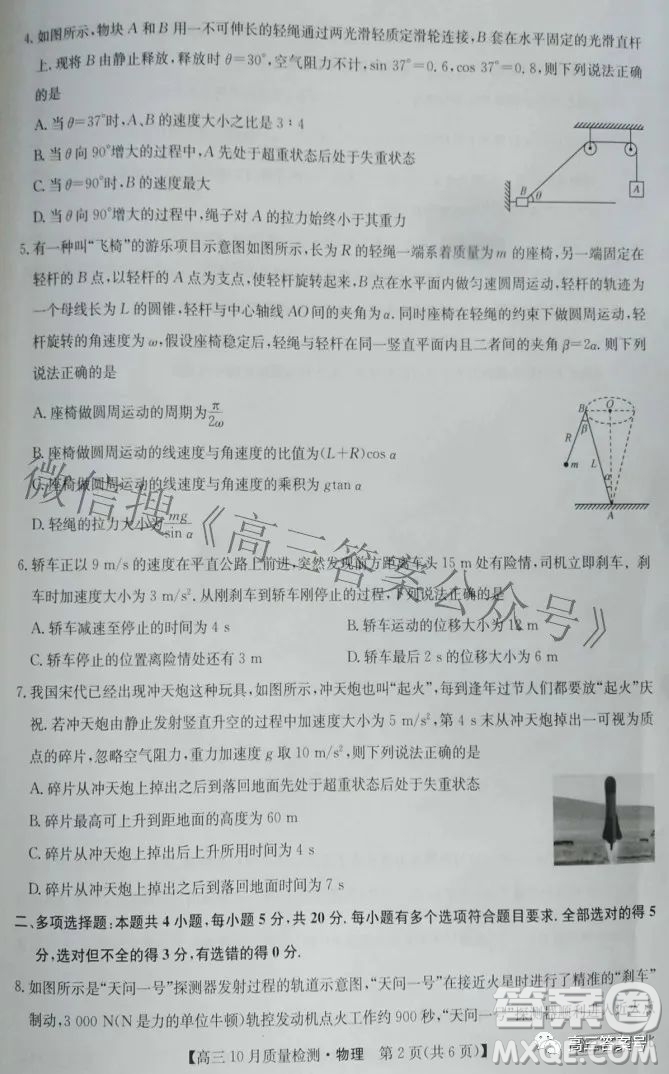 4. 如图所示,物块 A 和 B 用一不可伸长的轻绳通过两光滑轻质定滑轮连接,B 套在水平固定的光滑直杆
上. 现将 B 由静止释放,释放时 θ=30°,空气阻力不计,sin 37°=0.6,cos 37°=0.8,则下列说法正确
的是
A. 当 θ=37°时,A、B 的速度大小之比是 3:4
B. 当 θ 向 90°增大的过程中,A 先处于超重状态后处于失重状态
C. 当 θ=90°时,B 的速度最大
D. 当 θ 向 90°增大的过程中,绳子对 A 的拉力始终小于其重力
B
θ
A
5. 有一种叫“飞椅”的游乐项目示意图如图所示,长为 R 的轻绳一端系着质量为 m 的座椅,另一端固定在
轻杆的 B 点,以轻杆的 A 点为支点,使轻杆旋转起来,B 点在水平面内做匀速圆周运动,轻杆的轨迹为
一个母线长为 L 的圆锥,轻杆与中心轴线 AO 间的夹角为 α. 同时座椅在轻绳的约束下做圆周运动,轻
杆旋转的角速度为 ω,假设座椅稳定后,轻绳与轻杆在同一竖直平面内且二者间的夹角 β=2α. 则下列
说法正确的是
A. 座椅做圆周运动的周期为π/2ω
B. 座椅做圆周运动的线速度与角速度的比值为(L+R)cos α
C. 座椅做圆周运动的线速度与角速度的乘积为 gtan α
D. 轻绳的拉力大小为mg/sin α
B
O
β
R
L
m
α
A
6. 轿车正以 9 m/s 的速度在平直公路上前进,突然发现前方距离车头 15 m 处有险情,司机立即刹车,刹
车时加速度大小为 3 m/s². 从刚刹车到轿车刚停止的过程,下列说法正确的是
A. 轿车减速至停止的时间为 4 s
B. 轿车运动的位移大小为 12 m
C. 轿车停止的位置离险情处还有 3 m
D. 轿车最后 2 s 的位移大小为 6 m
7. 我国宋代已经出现冲天炮这种玩具,如图所示,冲天炮也叫“起火”,每到逢年过节人们都要放“起火”庆
祝. 若冲天炮由静止发射竖直升空的过程中加速度大小为 5 m/s²,第 4 s 末从冲天炮上掉出一可视为质
点的碎片,忽略空气阻力,重力加速度 g 取 10 m/s²,则下列说法正确的是
A. 碎片从冲天炮上掉出之后到落回地面先处于超重状态后处于失重状态
B. 碎片最高可上升到距地面的高度为 60 m
C. 碎片从冲天炮上掉出后上升所用时间为 4 s
D. 碎片从冲天炮上掉出之后到落回地面所用时间为 7 s
二、多项选择题:本题共 4 小题,每小题 5 分,共 20 分. 每小题有多个选项符合题目要求. 全部选对的得 5
分,选对但不全的得 3 分,有选错的得 0 分.
8. 如图所示是“天问一号”探测器发射过程的轨道示意图,“天问一号”在接近火星时进行了精准的“刹车”
制动,3 000 N(N 是力的单位牛顿)轨控发动机点火工作约 900 秒,“天问一号”
【高三 10 月质量检测·物理 第 2 页(共 6 页)】
微信搜《高三答案公众号》
答案圈
MXQE.COM
高三答案号